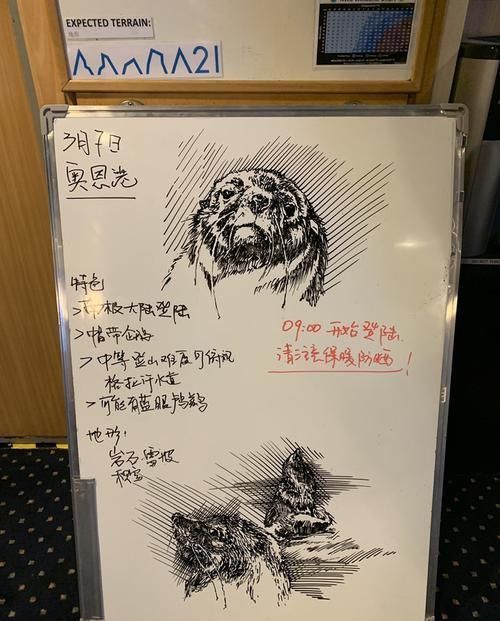 EXPECTED TERRAIN:
地形
21
3月7日
奥恩港
特色
>南极大陆登陆
>帽带企鹅
>中等登山难度可俯视
格拉汗水道
>可能有蓝眼鸬鹚
地形:
岩石,雪坡
积雪
09:00 开始登陆
请注意保暖防晒!